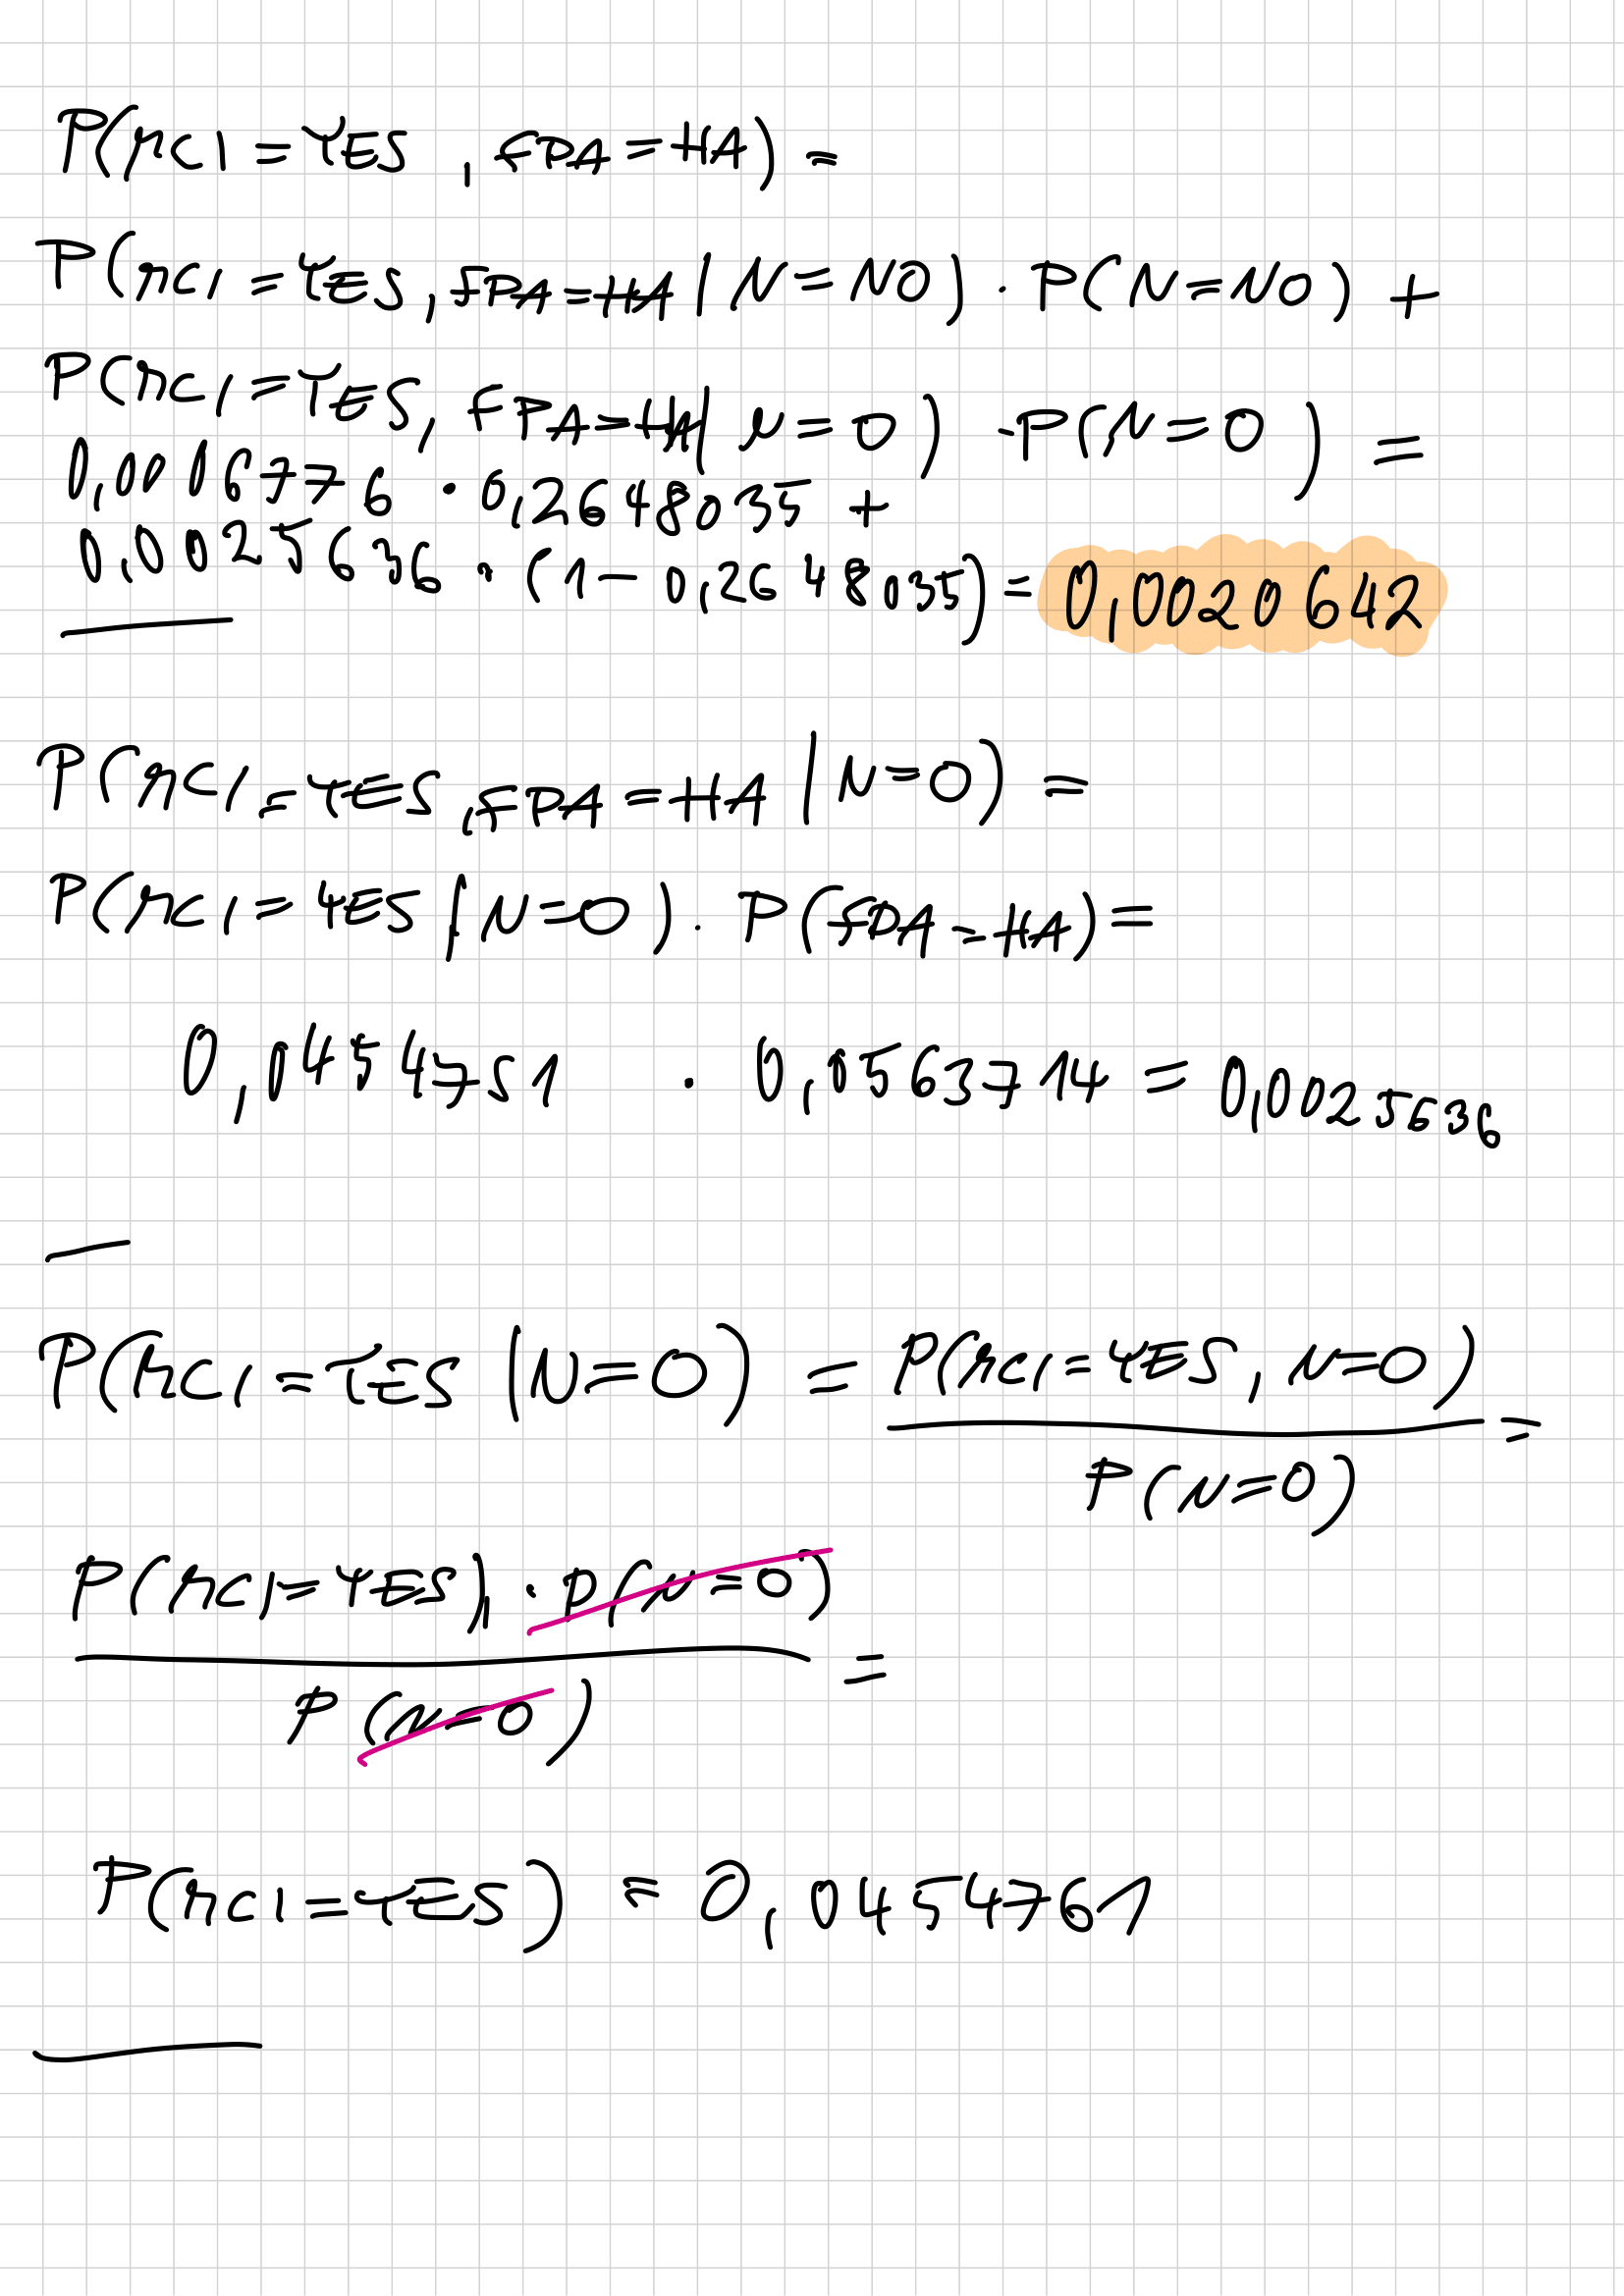 P(MC1 = YES , FPA = HA) =
P(MC1 = YES, FPA = HA | N = NO) · P(N = NO) +
P(MC1 = YES, FPA = HA | N = 0) · P(N = 0) =
0,0006776 · 0,2648035 +
0,0025636 · (1 - 0,2648035) = 0,0020642
P(MC1 = YES, FPA = HA | N = 0) =
P(MC1 = YES | N = 0) · P(FPA = HA) =
0,0454751 · 0,0563714 = 0,0025636
P(MC1 = YES | N = 0) = P(MC1 = YES, N = 0) =
P(N = 0)
P(MC1 = YES), · P(N = 0) =
P(N = 0)
P(MC1 = YES) = 0,0454761